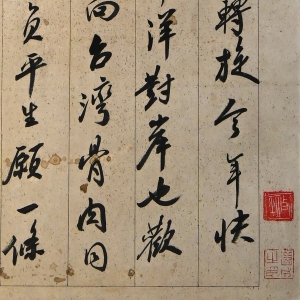 轉旋今年快
洋對岸也歡
台灣骨肉
負平生願一條